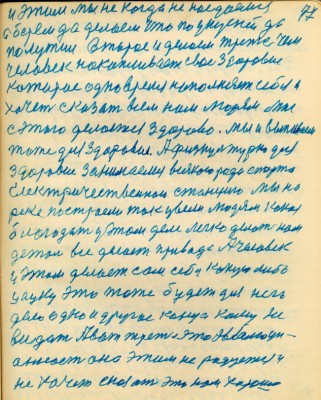 77
и этим мы не когда не наедаемся
а берем да делаем это по нужде да
попутти второе и делаем третье чем
человек накапливает свое здоровие
которое одно время наполняет себя и
хочет сказат всем нам людям мы
с этого делаемся здорово. мы и выпиваем
тоже для здоровие. А физкултурно для
здоровия занимаемся всякого рода спорта
Електричественном станцию мы на
реке построели ток увели людям
благодат у этом деле легко дает нам
детом все делает природа А человек
у этом делает сам себе какую либо
науку это тоже будет для него
дело одно и другое конца кому не
видат А вот третье это Эволюци-
аност она этим не радуется и
не хочет сказат это нам хорошо